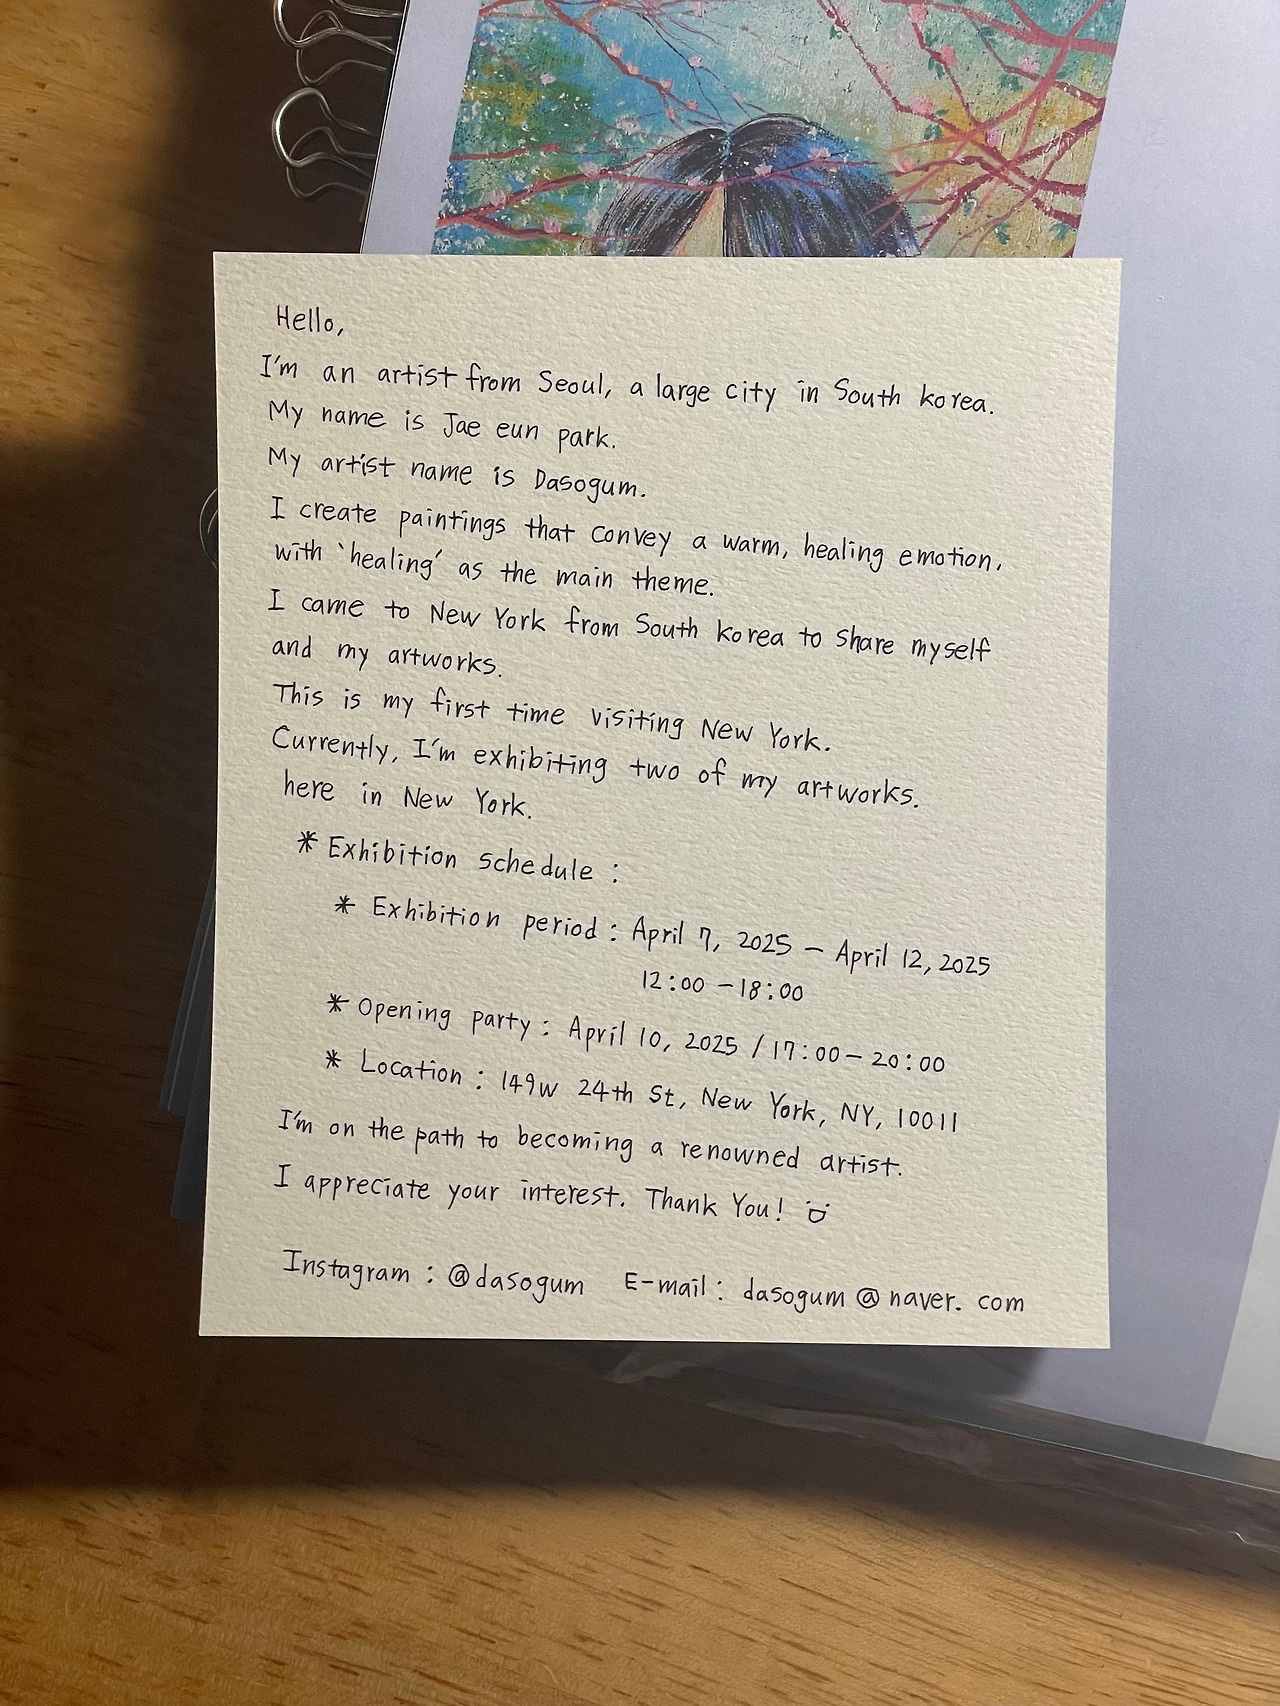 Hello,
I'm an artist from Seoul, a large city in South korea.
My name is Jae eun park.
My artist name is Dasogum.
I create paintings that convey a warm, healing emotion,
with 'healing' as the main theme.
I came to New York from South korea to share myself
and my artworks.
This is my first time visiting New York.
Currently, I'm exhibiting two of my artworks.
here in New York.
* Exhibition schedule :
* Exhibition period : April 7, 2025 – April 12, 2025
12:00 – 18:00
* Opening party : April 10, 2025 / 17:00 – 20:00
* Location : 149w 24th St, New York, NY, 10011
I'm on the path to becoming a renowned artist.
I appreciate your interest. Thank You! :D
Instagram : @dasogum E-mail : dasogum@naver.com